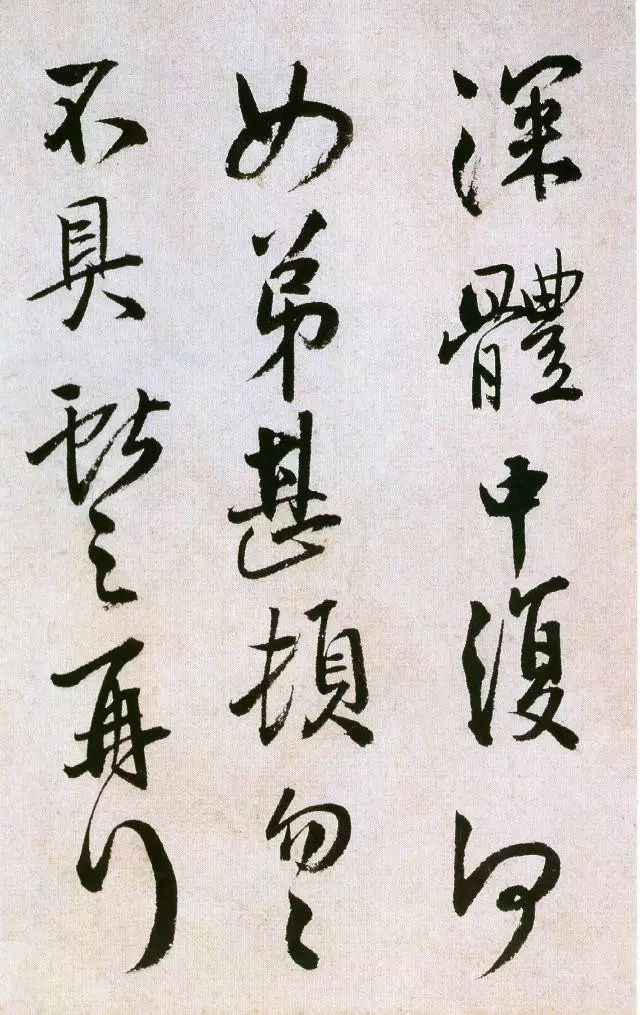 深體中復何
如弟甚頓勿勿
不具獻之再拜